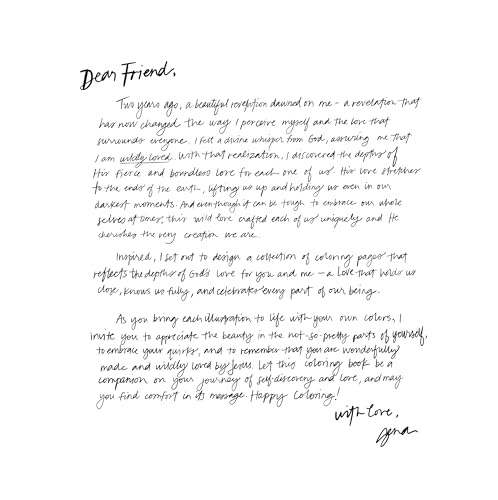 Dear Friend,
Two years ago, a beautiful revelation dawned on me - a revelation that
has now changed the way I perceive myself and the love that
surrounds everyone. I felt a divine whisper from God, assuring me that
I am wildly loved. With that realization, I discovered the depths of
His fierce and boundless love for each one of us. His love stretches
to the ends of the earth, lifting us up and holding us even in our
darkest moments. And even though it can be tough to embrace our whole
selves at times, this wild love crafted each of us uniquely and He
cherishes the very creation we are.
Inspired, I set out to design a collection of coloring pages that
reflects the depths of God's love for you and me - a Love that holds us
close, knows us fully, and celebrates every part of our being.
As you bring each illustration to life with your own colors, I
invite you to appreciate the beauty in the not-so-pretty parts of yourself,
to embrace your quirks, and to remember that you are wonderfully
made and wildly loved by Jesus. Let this coloring book be a
companion on your journey of self-discovery and love, and may
you find comfort in its message. Happy Coloring!
with love,
Jena